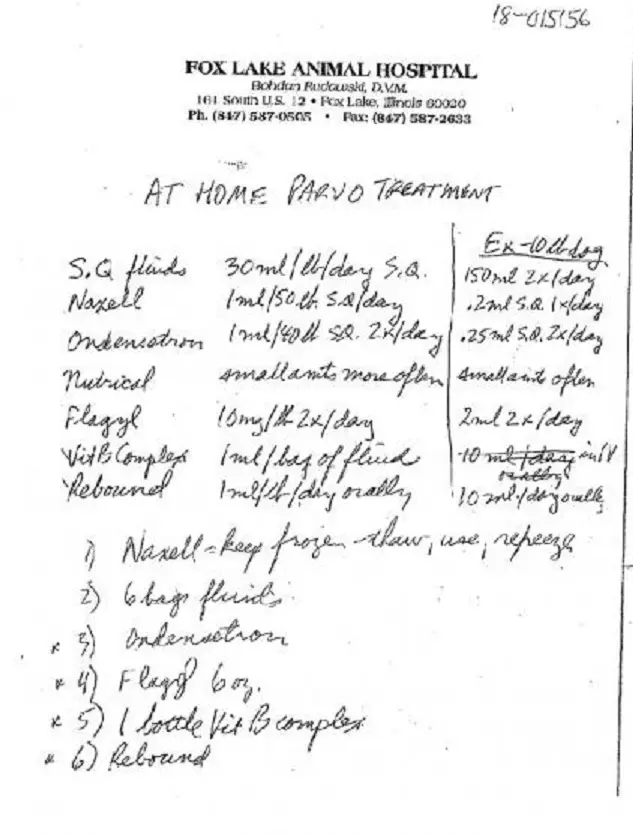 18-015156
FOX LAKE ANIMAL HOSPITAL
Bohdan Rudawski, D.V.M.
161 South U.S. 12 • Fox Lake, Illinois 60020
Ph. (847) 587-0505 • Fax: (847) 587-2633
AT HOME PARVO TREATMENT
Ex-10 lb dog
S.Q fluids 30ml/lb/day S.Q. 150ml 2x/day
Naxell 1ml/50lb. S.Q/day .2ml S.Q. 1x/day
Ondensetron 1ml/40lb SQ. 2x/day .25ml S.Q. 2x/day
Nutrical small amts more often small amts often
Flagyl 10mg/lb 2x/day 2ml 2x/day
Vit B Complex 1ml/bag of fluid 10 ml/day in IV
orally
Rebound 1ml/lb/day orally 10ml/day orally
1) Naxell = keep frozen - thaw, use, refreeze
2) 6 bags fluids
x 3) Ondensetron
x 4) Flagyl 6 oz.
x 5) 1 bottle Vit B complex
x 6) Rebound